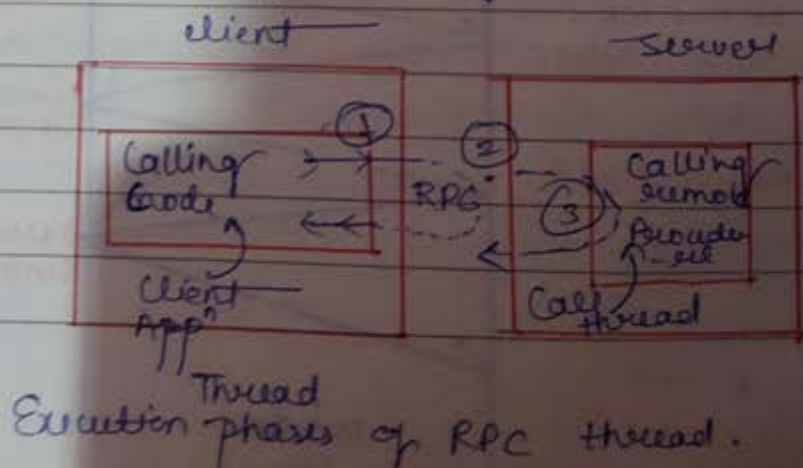 client
Server
1
2
Calling
Code
RPC
3
Calling
remote
Procedu
-re
Client
Appn
Call
thread
Thread
Execution phases of RPC thread.